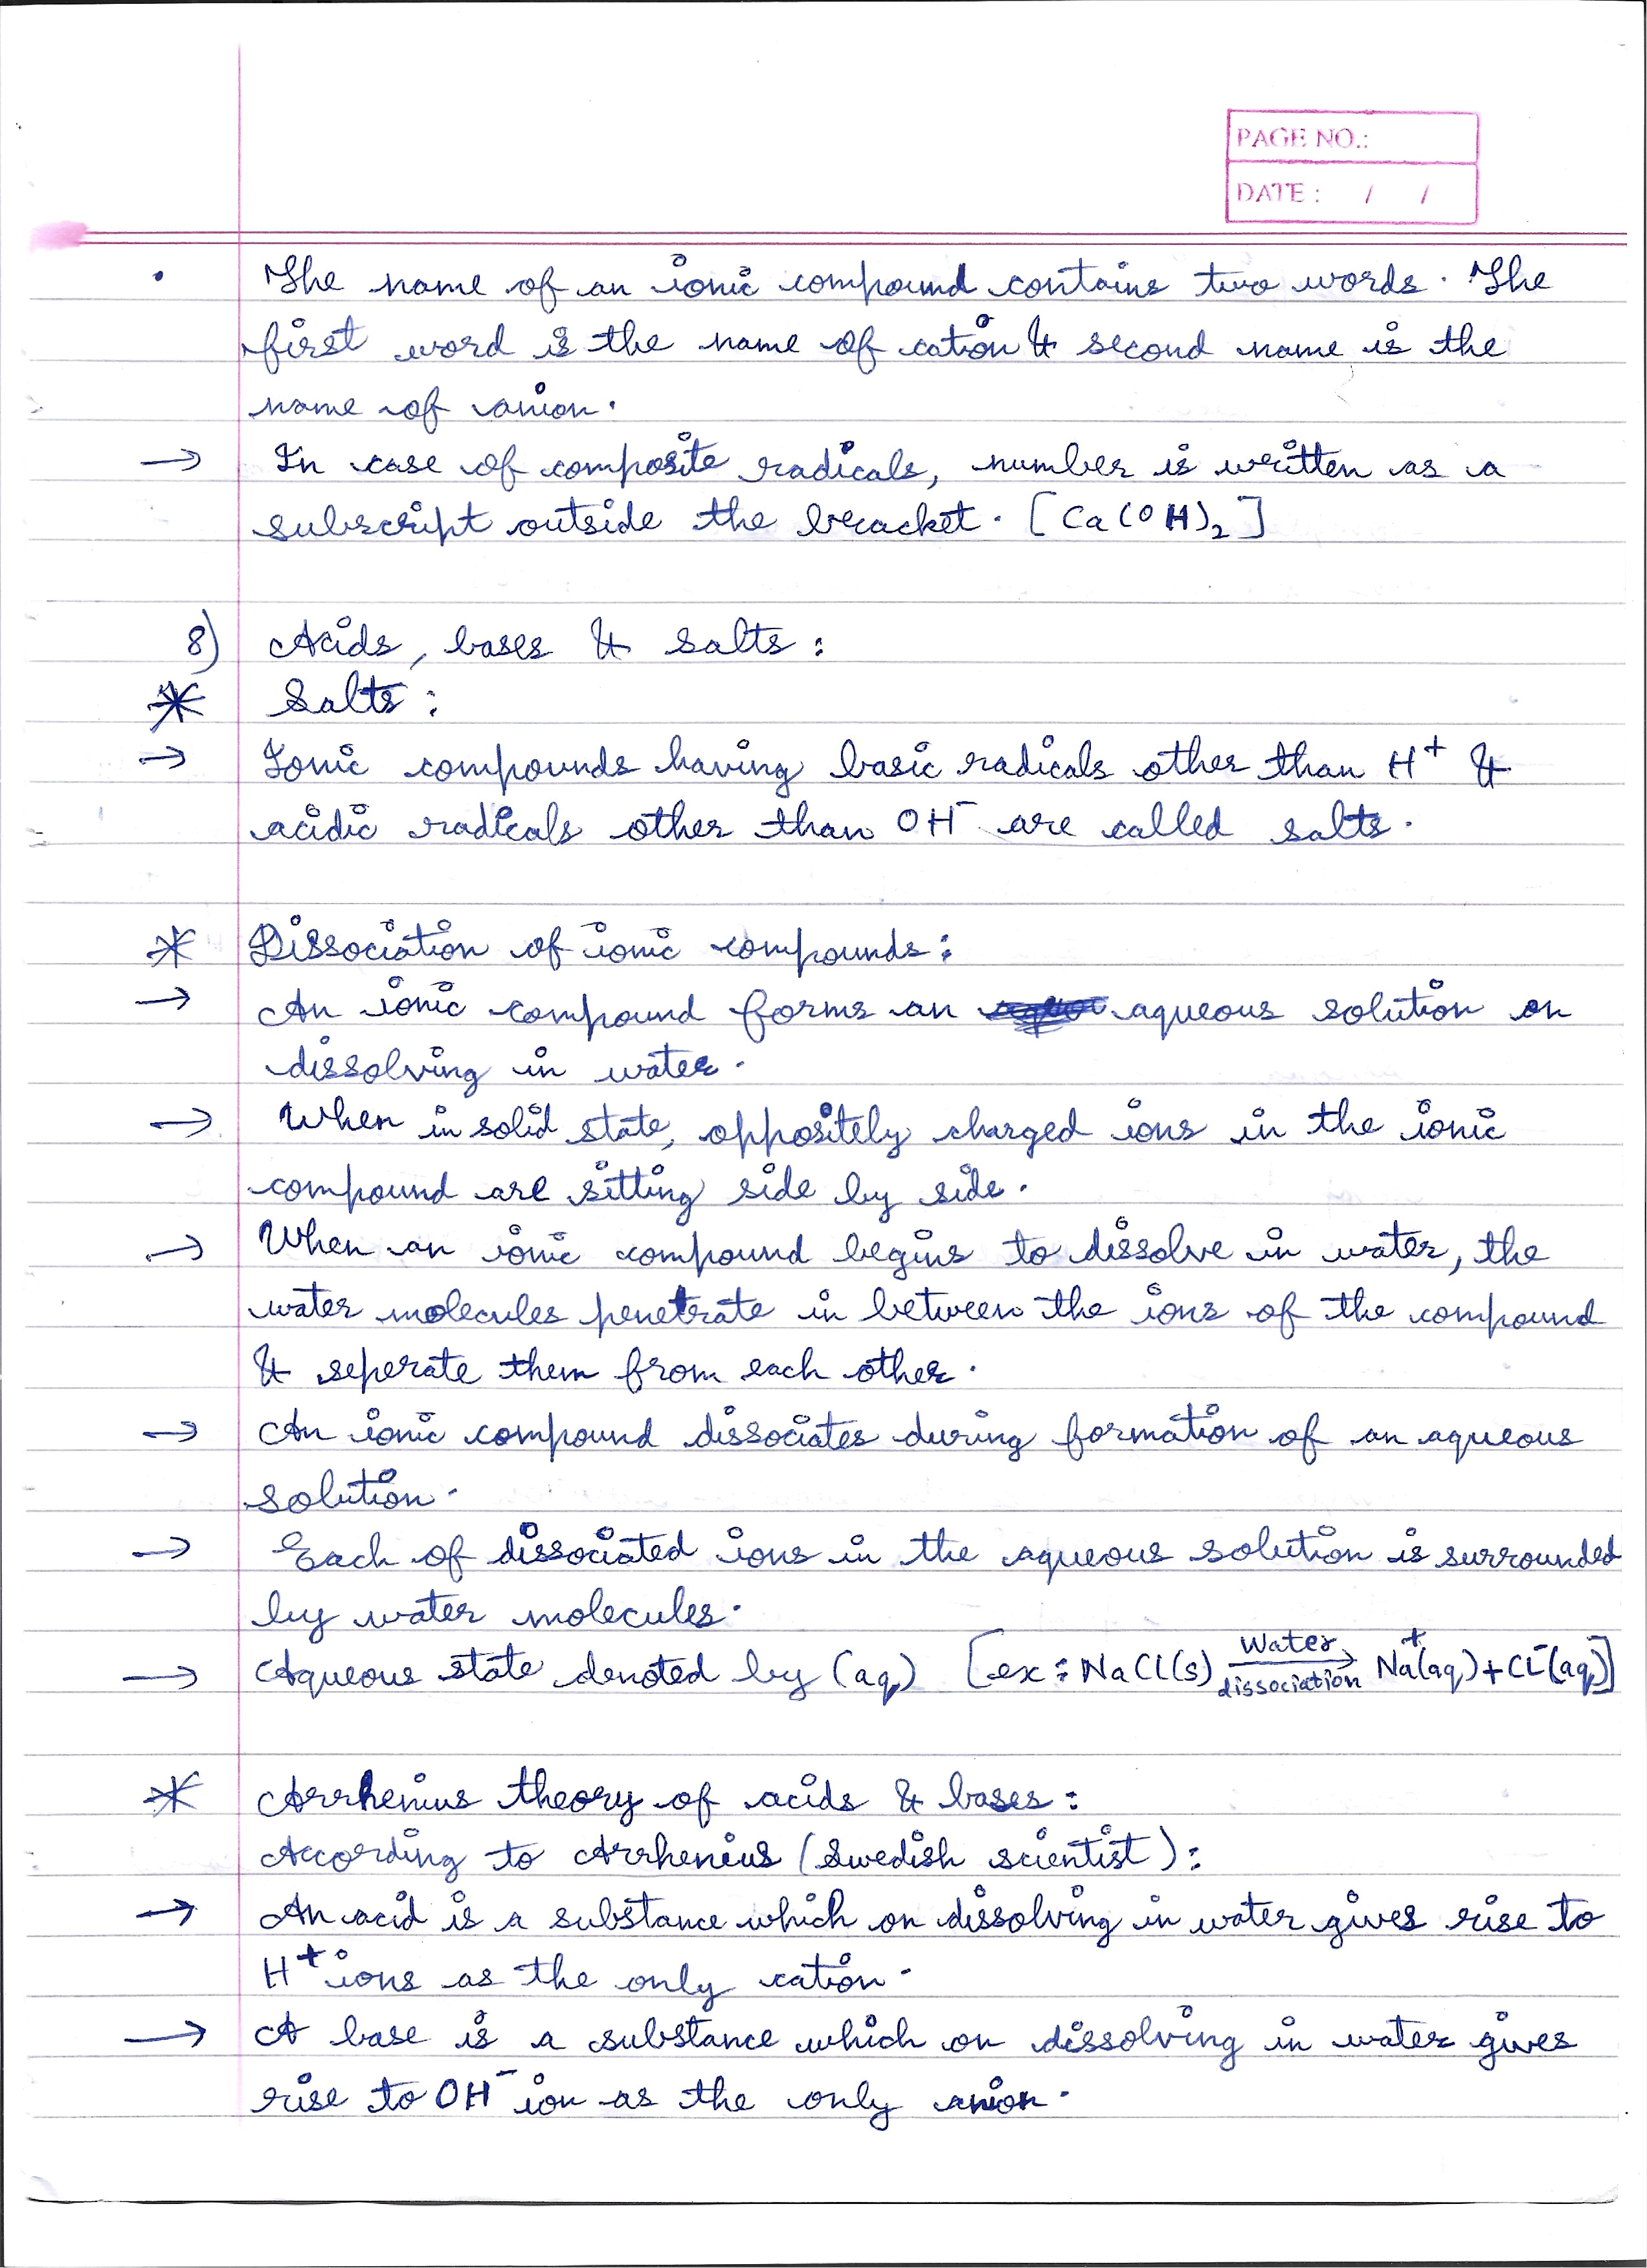 PAGE NO.:
DATE : / /
• The name of an ionic compound contains two words. The
first word is the name of cation & second name is the
name of anion.
→ In case of composite radicals, number is written as a
subscript outside the bracket. [Ca(OH)₂]
8) Acids, bases & salts :
* Salts :
→ Ionic compounds having basic radicals other than H⁺ &
acidic radicals other than OH⁻ are called salts.
* Dissociation of ionic compounds :
→ An ionic compound forms an aqueous solution on
dissolving in water.
→ When in solid state, oppositely charged ions in the ionic
compound are sitting side by side.
→ When an ionic compound begins to dissolve in water, the
water molecules penetrate in between the ions of the compound
& seperate them from each other.
→ An ionic compound dissociates during formation of an aqueous
solution.
→ Each of dissociated ions in the aqueous solution is surrounded
by water molecules.
→ Aqueous state denoted by (aq) [ex : NaCl(s) Water → dissociation Na⁺(aq) + Cl⁻(aq)]
* Arrhenius theory of acids & bases :
According to Arrhenius (Swedish scientist) :
→ An acid is a substance which on dissolving in water gives rise to
H⁺ ions as the only cation.
→ A base is a substance which on dissolving in water gives
rise to OH⁻ ion as the only anion.